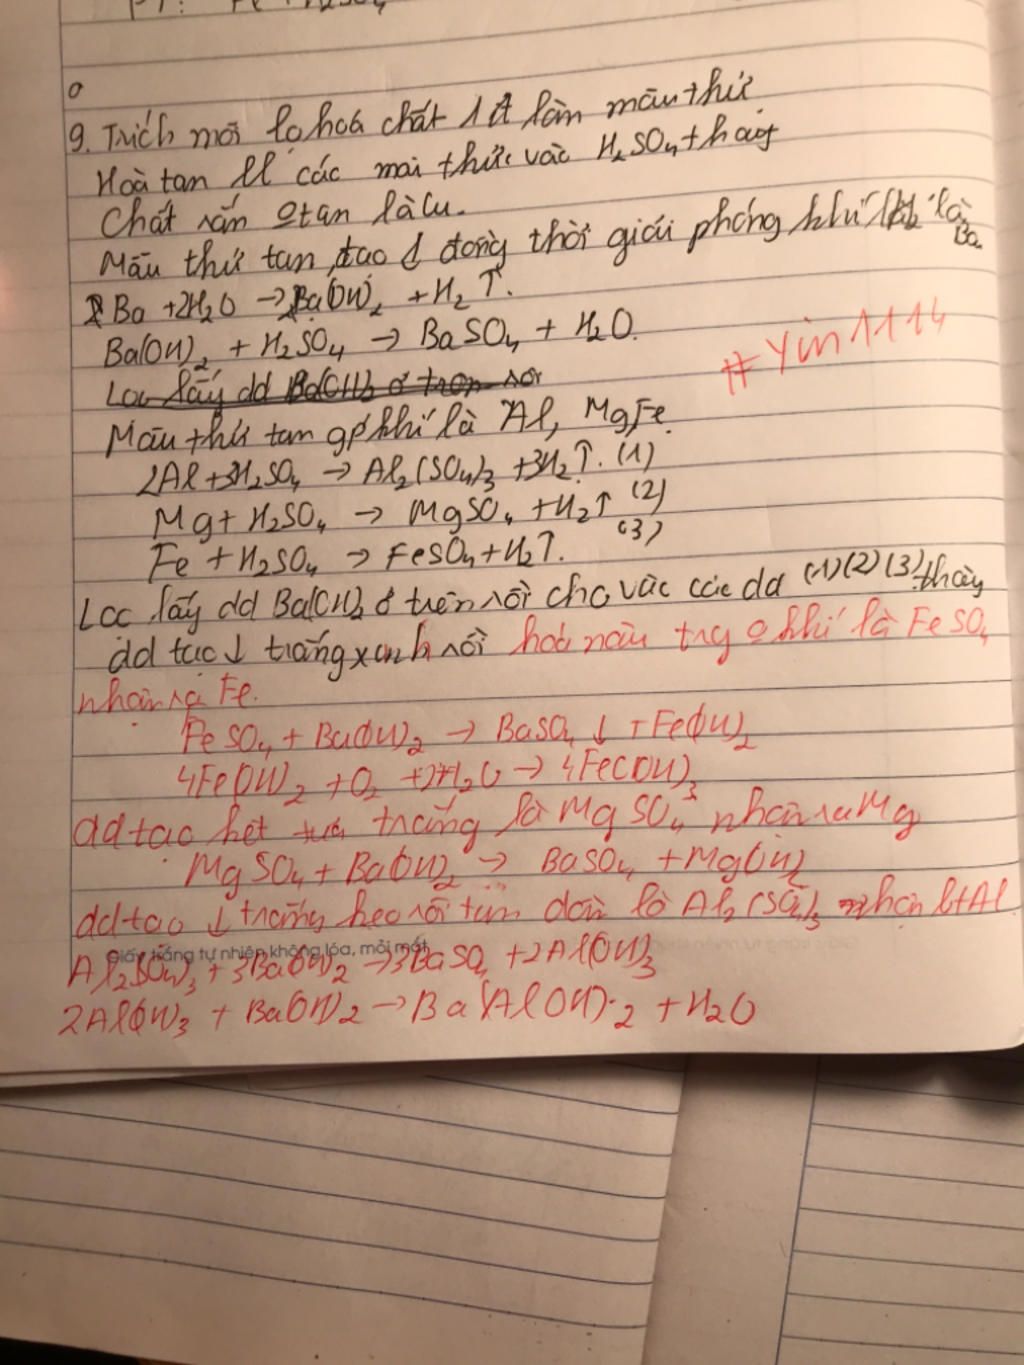 9. Trích mỗi lọ hoá chất 1 ít làm mẫu thử
Hoà tan các mẫu thử vào H₂SO₄
Chất rắn tan là Cu.
Mẫu thử tan tạo ↓ đồng thời giải phóng khí H₂ là Ba
Ba + 2H₂O → Ba(OH)₂ + H₂↑.
Ba(OH)₂ + H₂SO₄ → BaSO₄ + H₂O.
#Yin1114
Lọc lấy dd Ba(OH)₂ ở trên rồi
Mẫu thử tan gp khí là Al, Mg, Fe.
2Al + 3H₂SO₄ → Al₂(SO₄)₃ + 3H₂↑. (1)
Mg + H₂SO₄ → MgSO₄ + H₂↑ (2)
Fe + H₂SO₄ → FeSO₄ + H₂↑. (3)
Lọc lấy dd Ba(OH)₂ ở trên rồi cho vào các dd (1)(2)(3) thấy
dd tạo ↓ trắng xanh rồi hoá nâu trg khí là FeSO₄
nhận ra Fe.
FeSO₄ + Ba(OH)₂ → BaSO₄↓ + Fe(OH)₂
4Fe(OH)₂ + O₂ + 2H₂O → 4Fe(OH)₃
dd tạo kết tủa trắng là MgSO₄ nhận ra Mg
MgSO₄ + Ba(OH)₂ → BaSO₄ + Mg(OH)₂
dd tạo ↓ trắng keo rồi tan dần là Al₂(SO₄)₃ nhận Al
Giấy trắng tự nhiên không lóa, mỏi mắt
Al₂(SO₄)₃ + 3Ba(OH)₂ → 3BaSO₄ + 2Al(OH)₃
2Al(OH)₃ + Ba(OH)₂ → Ba + H₂O